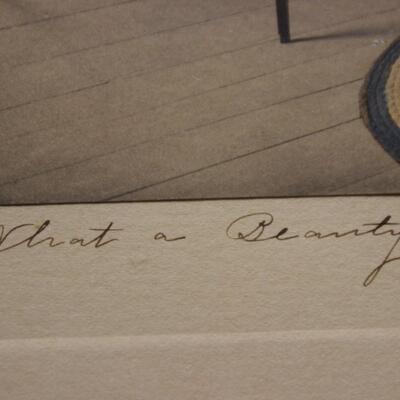 What a Beauty